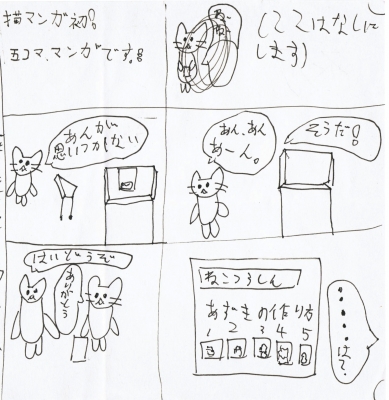 描マンガ初!
五コマ、マンガです。!!
(ここはなしに
します)
あんが
思いつかない
あん、あん
あーん。
そうだ!
はいどうぞ
ありがとう
ねこつうしん
あずきの作り方
1 2 3 4 5
・・・・・は?